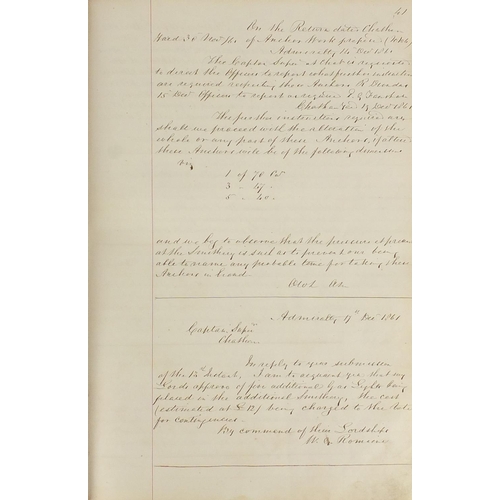 41
On the Return dated Chatham
Yard 30 Nov/61 of Anchor Work
Admiralty 14 Dec 1861
The Captn Supt at Chatham is requested
to direct the Officers to report what further instructions
are required respecting these Anchors
15 Dec Officers to report as required
Chatham Yard 17 Dec 1861
The further instructions required are
shall we proceed with the alteration of the
whole or any part of these Anchors, if altered
these Anchors will be of the following dimensions
viz
1 of 70 Cwt
3 " 47 "
5 " 40 "
and we beg to observe that the pressure of
at the Smithery is such as to prevent our being
able to name any probable time for taking these
Anchors in hand
Admiralty 17th Dec 1861
Captn Supt
Chatham
In reply to your submission
of the 12th Instant, I am to acquaint you that my
Lords approve of four additional Gas Lights being
placed in the additional Smithery, the cost
(estimated at £12) being charged to the Vote
for contingencies.
By command of their Lordships
W. G. Romaine